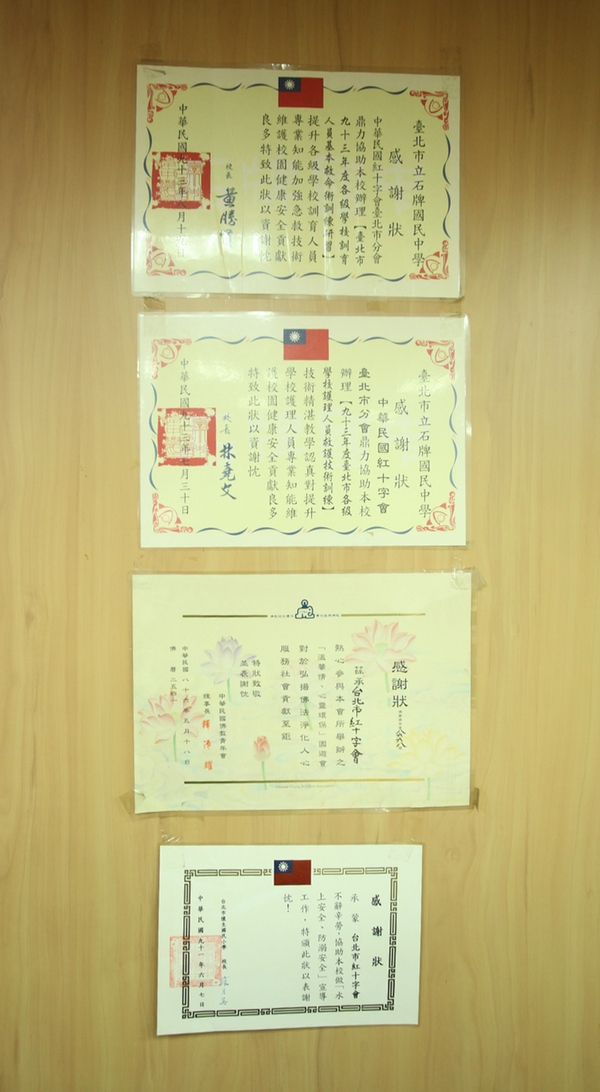 臺北市立石牌國民中學
感謝狀
中華民國紅十字會臺北市分會
鼎力協助本校辦理【臺北市
九十三年度各級學校訓育
人員基本救命術訓練研習】
提升各級學校訓育人員
專業知能加強急救技術
維護校園健康安全貢獻
良多特致此狀以資謝忱
校長
中華民國九十三年八月十
臺北市立石牌國民中學
感謝狀
中華民國紅十字會
臺北市分會鼎力協助本校
辦理【九十三年度臺北市各級
學校護理人員救護技術訓練】
技術精湛教學認真對提升
學校護理人員專業知能維
護校園健康安全貢獻良多
特致此狀以資謝忱
校長 林堯文
中華民國九十三年七月三十日
感謝狀
茲承台北市紅十字會
熱心參與本會所舉辦之
「溫馨情、心靈環保」園遊會
對於弘揚佛法淨化人心
服務社會貢獻至鉅
特狀致敬
並表謝忱
中華民國佛教青年會
理事長
中華民國八十 年五月十八日
感謝狀
承蒙 台北市紅十字會
不辭辛勞，協助本校做「水
上安全、防溺安全」宣導
工作，特頒此狀以表謝
忱！
校長
中華民國九十一年六月七日